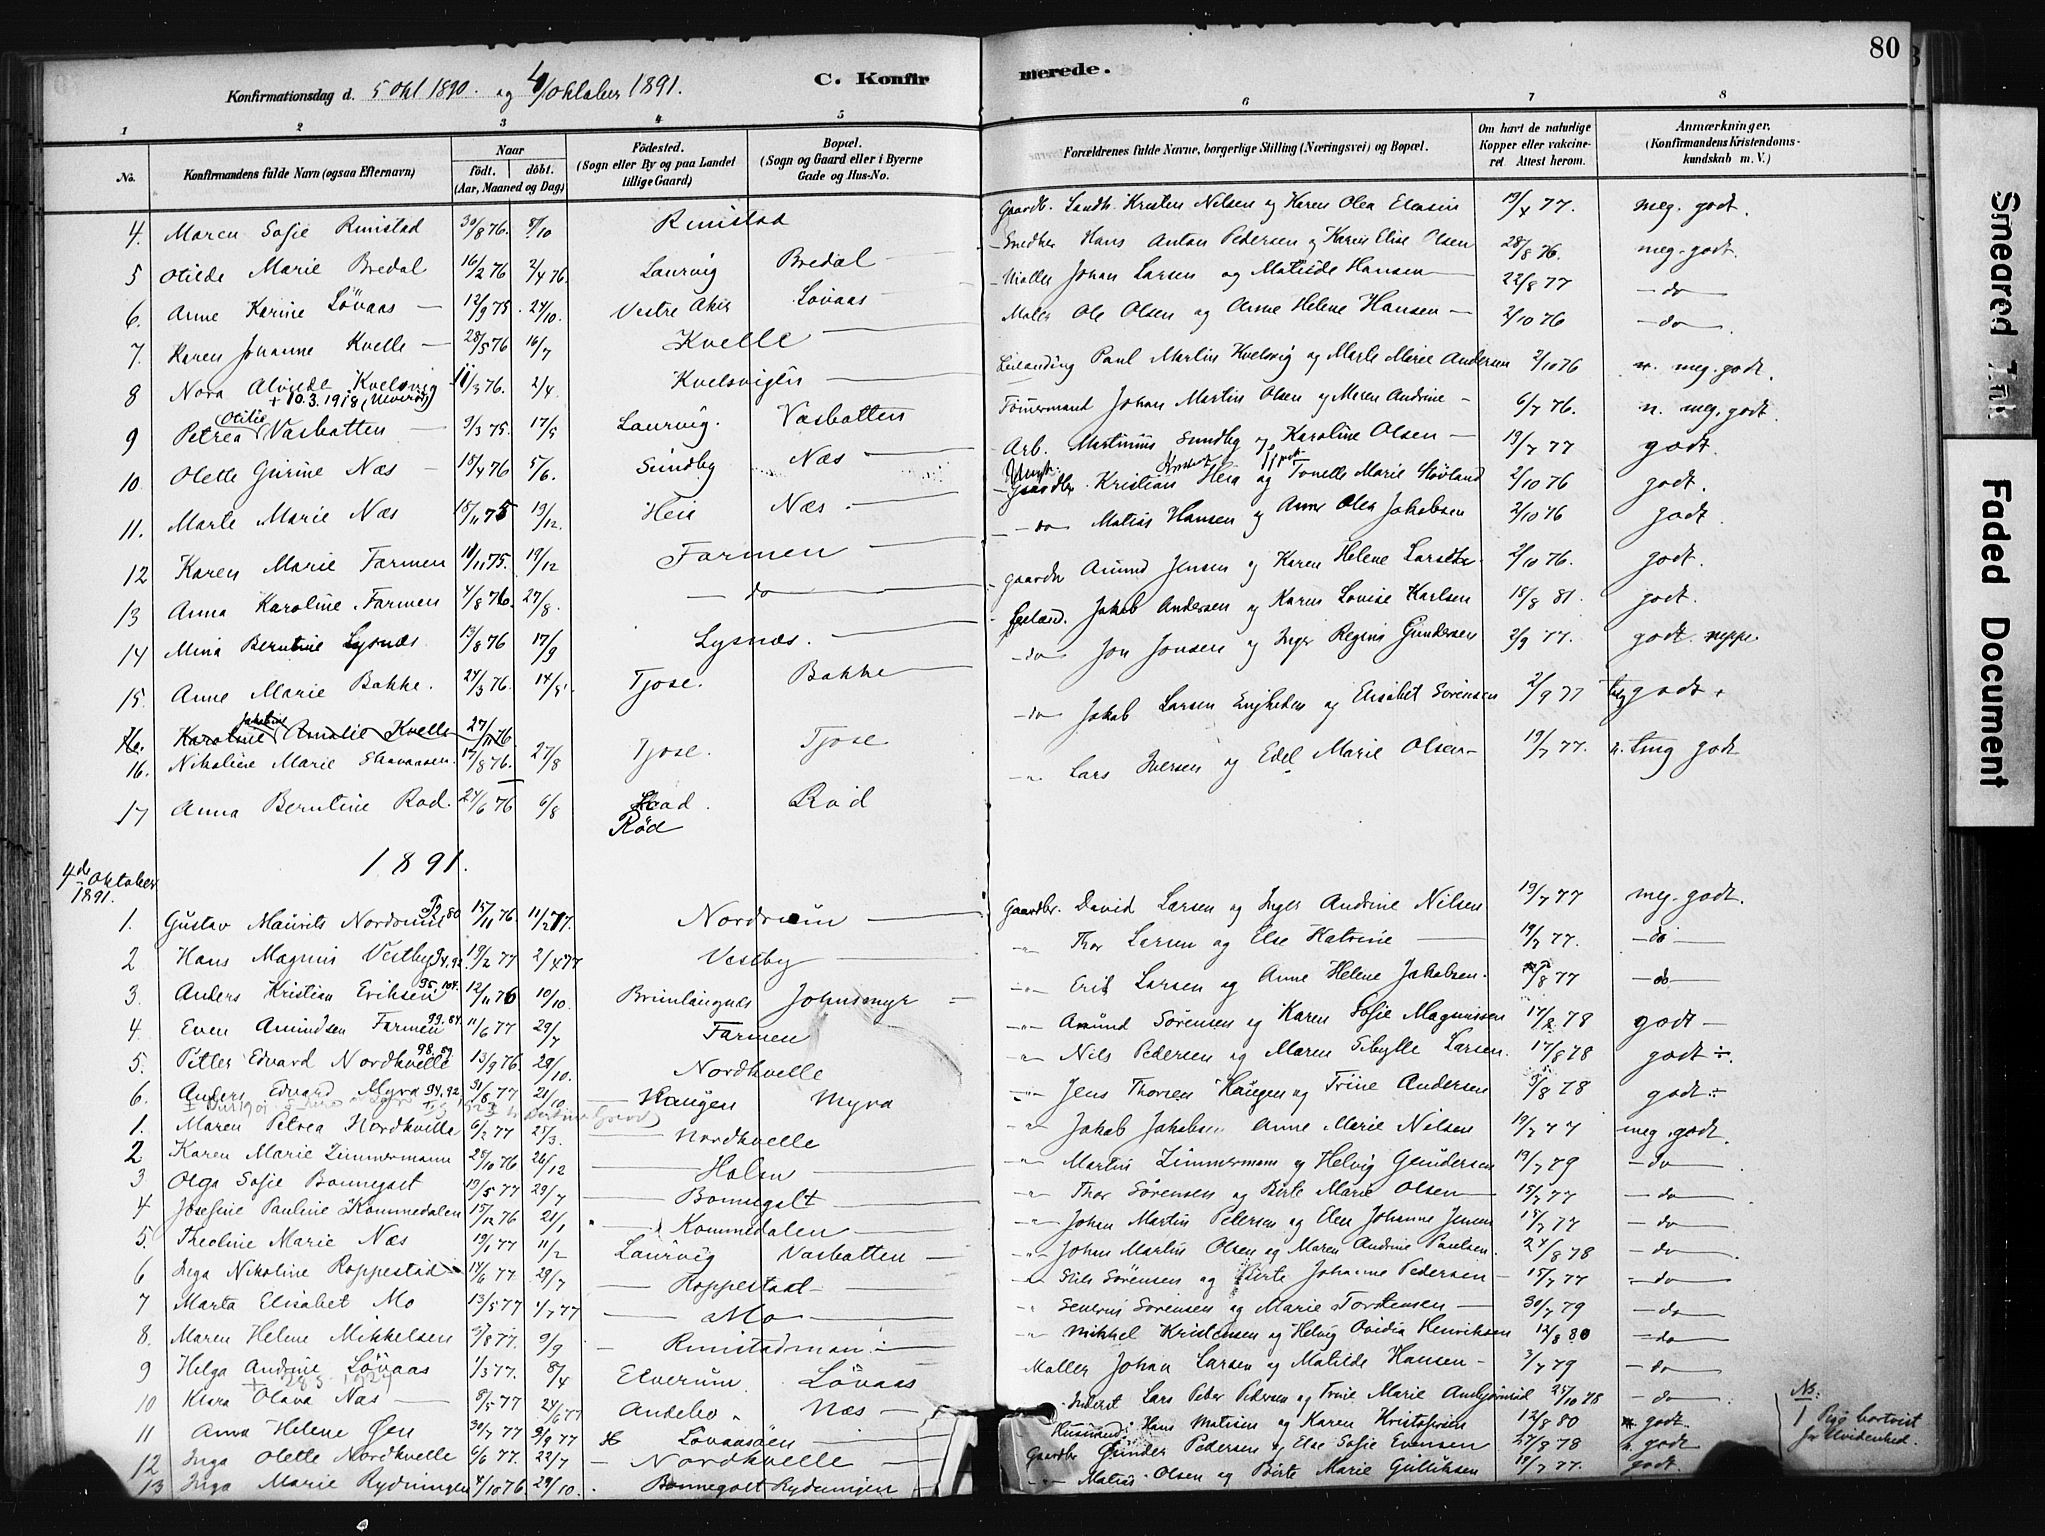 80
C. Konfirmerede.
Konfirmationsdag d. 5 Okt 1890. og 4/Oktober 1891.
1 2 3 4 5 6 7 8
No. Konfirmandens fulde Navn (ogsaa Efternavn) Naar født. døbt. (Aar, Maaned og Dag) Fødested. (Sogn eller By og paa Landet tillige Gaard) Bopæl. (Sogn og Gaard eller i Byerne Gade og Hus-No. Forældrenes fulde Navne, borgerlige Stilling (Næringsvei) og Bopæl. Om havt de naturlige Kopper eller vaccineret. Attest herom. Anmærkninger. (Konfirmandens Kristendomskundskab m. V.)
4. Maren Sofie Rimstad 30/8 76. 8/10 Rimstad Gaardb. Kristen Nilsen og Karen Olea 19/4 77. meg. godt.
5 Otilde Marie Bredal 16/2 76 2/4 76. Laurvig Bredal Hans Anton Pedersen og Karen Elise Olsen 28/8 76. meg. godt.
6. Anne Karine Løvaas 12/9 75. 24/10. Vestre Aker Løvaas Møller Johan Larsen og Matilde Hansen 22/8 77 do
7. Karen Johanne Kvelle 28/5 76 16/7 Kvelle Ole Olsen og Anne Helene Hansen 2/10 76 do
8 Nora Alvilde Kvelsvig 11/3 76. 2/4. Kvelsvigen Leilænding Paul Martin Kvelsvig og Marte Marie Andersen 2/10 76 n. meg. godt.
+ 10.3.1918
9 Petrea Otilie Vasbotten 9/3 75. 17/5 Laurvig. Vasbotten Tømmermand Johan Martin Olsen og Maren Andrine 6/7 76. n. meg. godt.
10. Olette Gurine Næs 15/4 76 5/6. Sundby Næs Arb. Martinius Sundby og Karoline Olsen 19/7 77 godt.
11. Marte Marie Næs 15/11 75 19/12. Hei Næs Gaardbr. Kristian Heia og Tonette Marie 2/10 76 godt.
12 Karen Marie Farmen 10/11 75. 19/12 Farmen do Matias Hansen og Anne Olea Jakobsen 2/10 76 godt.
13 Anna Karoline Farmen 4/8 76. 27/8. do Gaardbr Amund Jensen og Karen Helene Larsen 2/10 76. godt.
14 Mina Berntine Lysnæs 13/8 76 17/9 Lysnæs. Jakob Andersen og Karen Lovise Karlsen 18/8 81. godt.
15. Anne Marie Bakke. 24/3 76. 14/5. Tjose. Bakke do Jon Jonsen og Inger Regine Gundersen 2/9 77. godt. neppe.
16. Karoline Jakobine Amalie Kvelle 27/11 76 do Jakob Larsen og Elisabet Sørensen 2/9 77 godt +
16. Nikoline Marie 17/8 76. 27/8 Tjose. Tjose Lars Iversen og Edel Marie Olsen 19/7 77. godt
17 Anna Berntine Rød. 24/6 76 6/8 Rød Rød
1891.
4de Oktober 1891.
1. Gustav Maurits Nordrum 15/11 76 11/2 77. Nordrum Gaardbr. David Larsen og Inger Andrine Nilsen 19/7 77 meg. godt.
2 Hans Magnus Vestby 94.92. 19/2 77 2/4 77 Vestby Thor Larsen og Else Katrine 19/7 77. do
3. Anders Kristian Eriksen 95.104. 12/11 76 10/10. Brunlangnæs Johnsmyr Erik Larsen og Anne Helene Jakobsen. /8 77 do
4. Even Amundsen Farmen 99.84. 11/6 77 29/7 Farmen Amund Sørensen og Karen Sofie Magnussen 17/8 78 godt
5. Petter Edvard Nordkvelle 98. 13/9 76. 29/10. Nordkvelle Nils Pedersen og Maren Sibylle Larsen. 17/8 78 godt ÷.
6. Anders Edvard Myra 94.92 31/8 77 21/10. Haugen Myra Jens Thoresen Haugen og Trine Andersen 5/8 78 godt ÷
1. Maren Petrea Nordkvelle 6/2 77 25/3. Nordkvelle Jakob Jakobsen Anne Marie Nilsen 19/7 77 meg. godt.
2 Karen Marie Zimmermann 28/10 76 26/12 Holm Martin Zimmermann og Helvig Gundersen 19/7 79 do
3 Olga Sofie Bonnegolt 19/5 77 29/7 Bonnegolt Thor Sørensen og Birte Marie Olsen 15/7 77 do
4 Josefine Pauline Kommedalen 15/12 76 21/1 Kommedalen Johan Martin Petersen og Elen Johanne Jensen 15/7 77 do
5. Theoline Marie Næs 19/1 77 11/2 Laurvig Vasbotten Johan Martin Olsen og Maren Andrine Paulsen. 24/8 78 do
6 Inga Nikoline Roppestad 14/6 77. 29/7 Roppestad Nils Sørensen og Birte Johanne Pedersen 15/7 77 do
7 Marta Elisabet Mo 13/5 77 1/7 77 Mo Severin Sørensen og Marie Torstensen 30/7 79 do
8. Maren Helene Mikkelsen 3/8 77. 9/9 Rimstadmoen Mikkel Kristensen og Helvig Ovidia Henriksen 12/8 80 do
9 Helga Andrine Løvaas 1/3 77. 8/4 Elverum Løvaas Møller Johan Larsen og Matilde Hansen 3/7 79 do
10 Klara Olava Næs 8/5 77 24/6 77 Andebo Næs Inderst Lars Peder Pedersen og Trine Marie 25/10 78 do
11 Anna Helene Øen 30/7 77 9/9 77 Løvaasøen Husmand Hans Matisen og Karen Kristofersen 12/8 80 godt.
12 Inga Olette Nordkvelle 6/6 77. 22/7 Nordkvelle Gaardbr Gunder Pedersen og Else Sofie Evensen 27/8 78 n. godt
13 Inga Marie Rydningen 4/10 76. 29/10. Bonnegolt Rydningen Matias Olsen og Birte Marie Gulliksen 19/7 77. godt.
NB: 1 Pige bortvist for Uvidenhed.
Smeared Ink
Faded Document